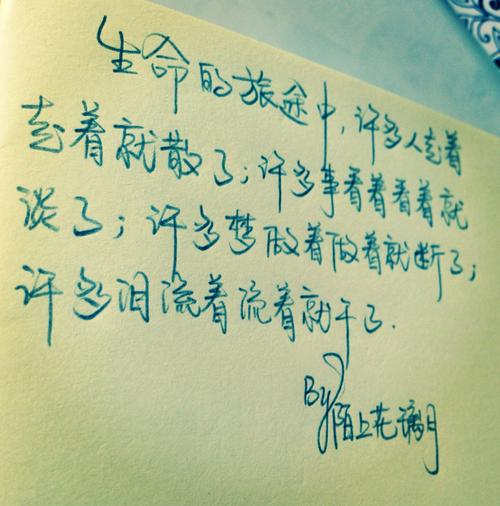 生命的旅途中,许多人走着
走着就散了;许多事看着看着就
淡了;许多梦做着做着就断了;
许多泪流着流着就干了.
By
陌上花璃月